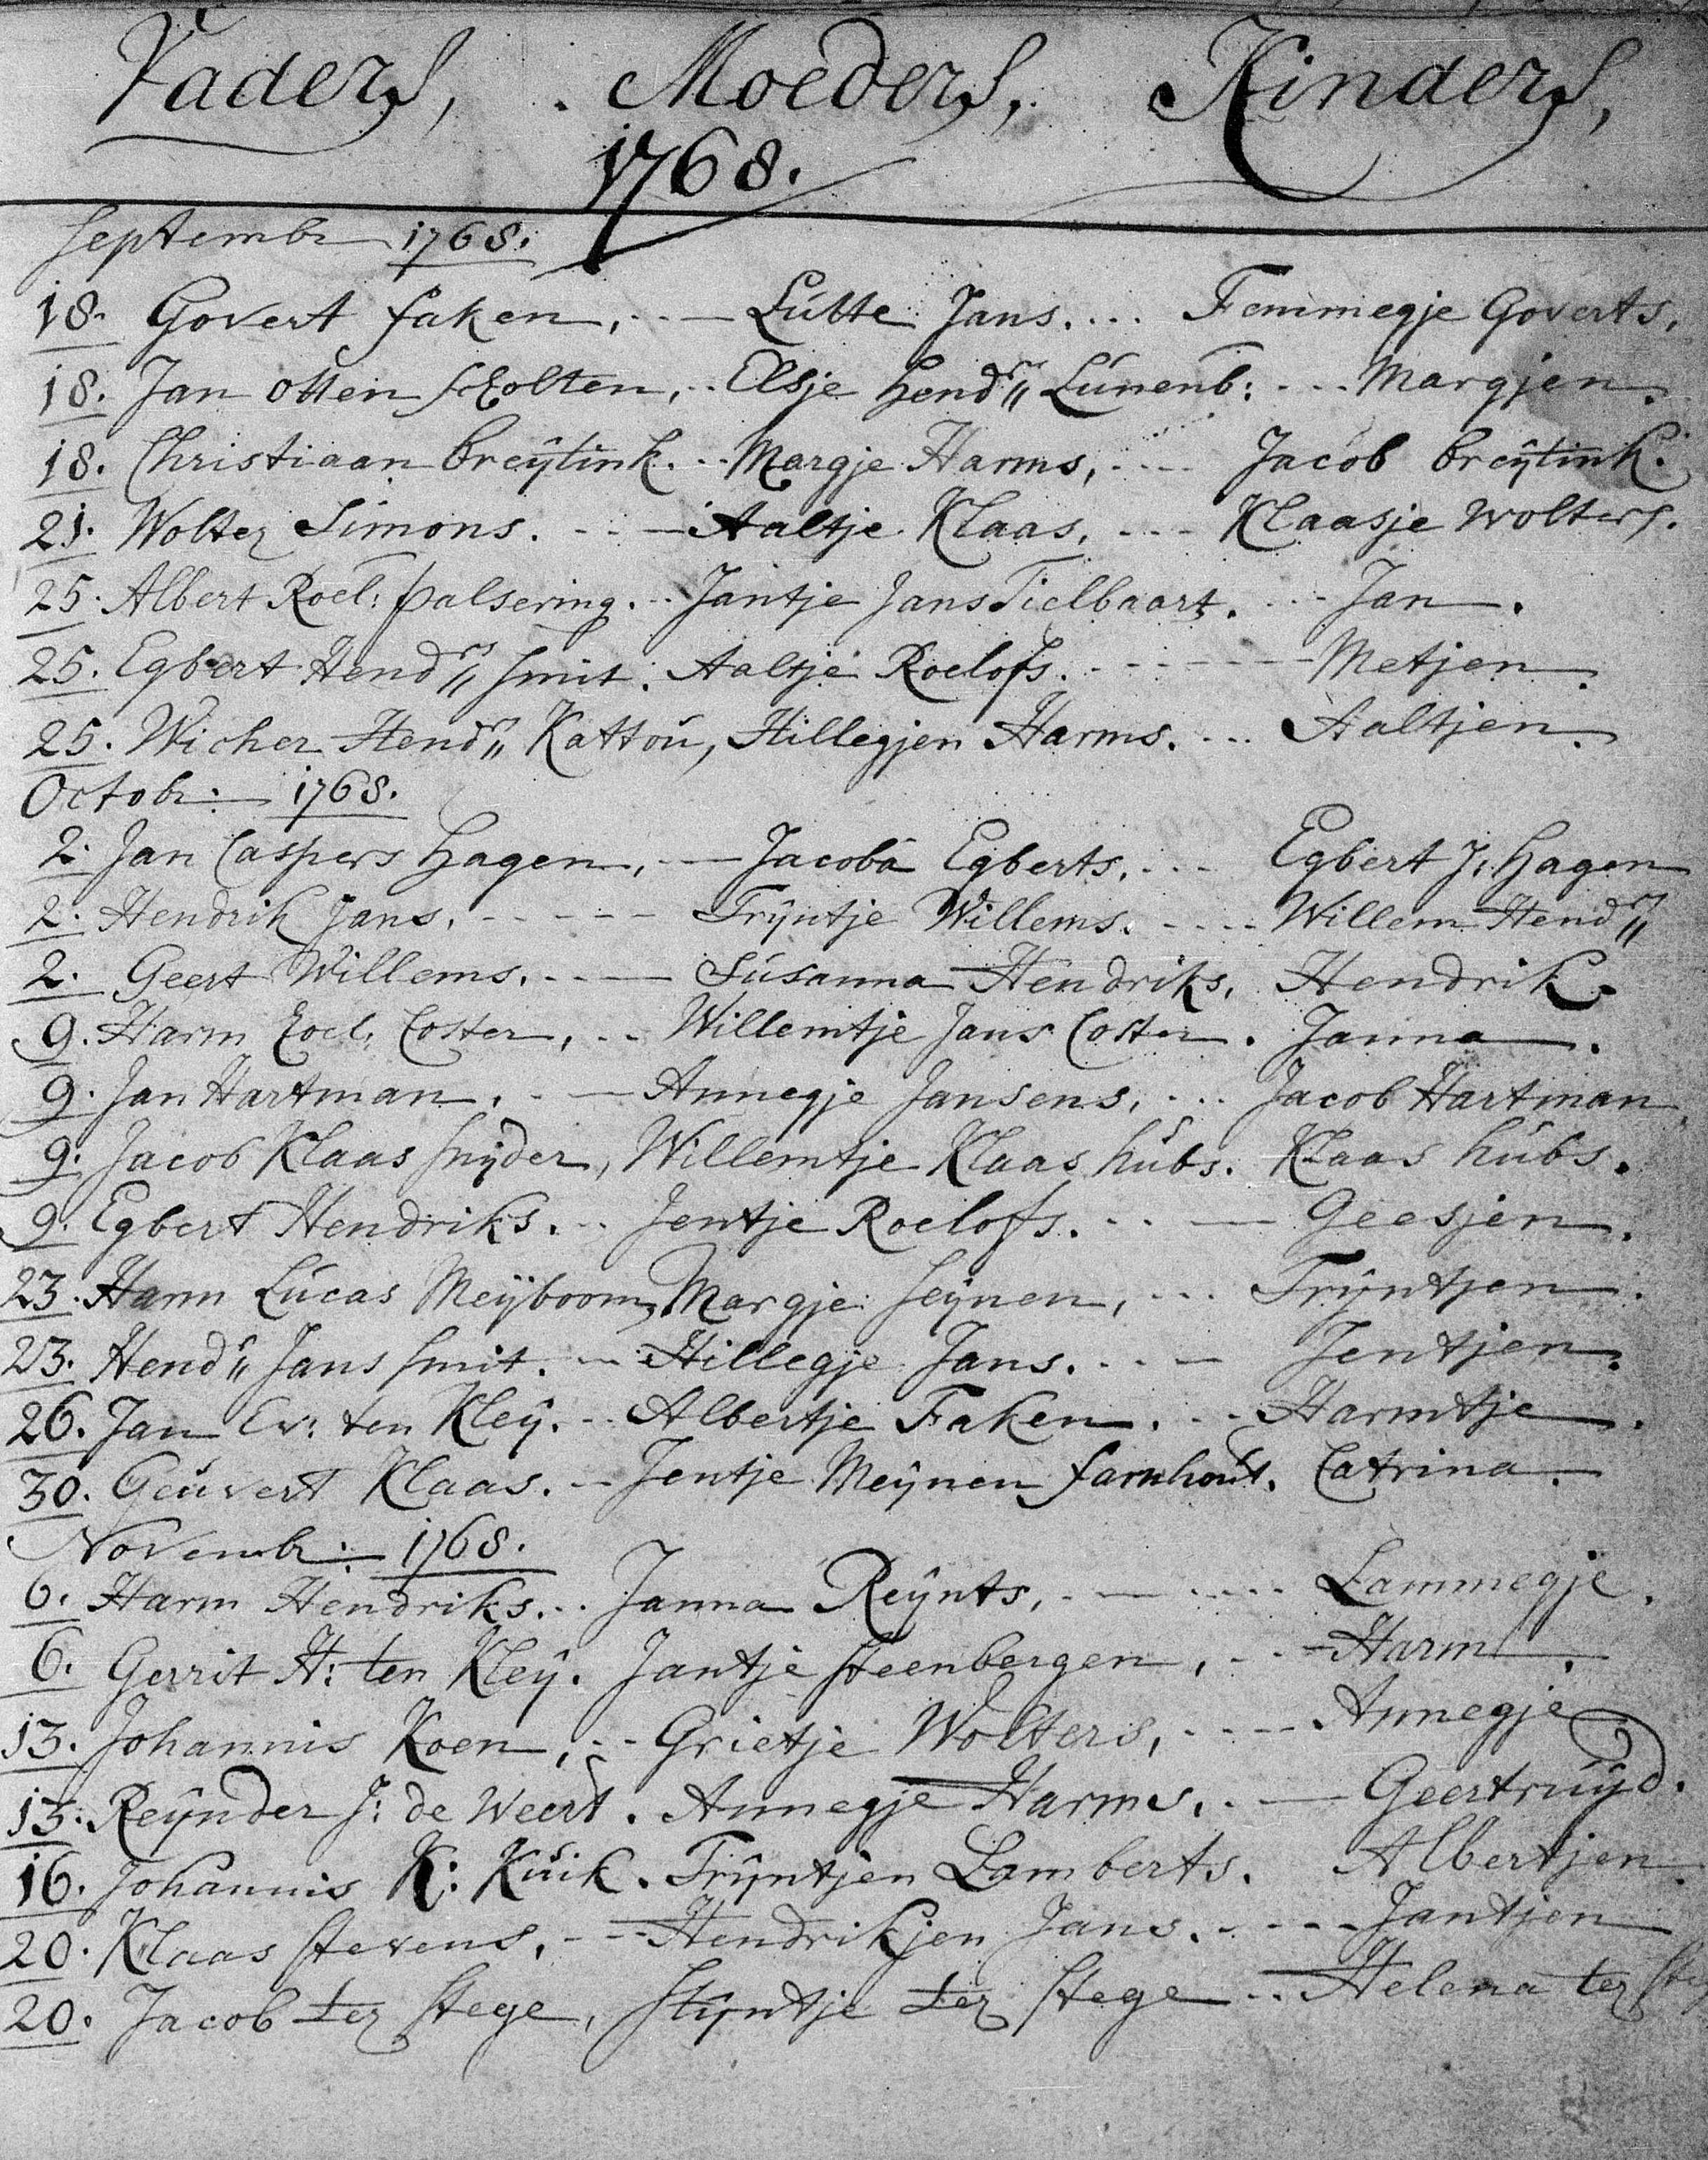 Vaders, . Moeders, Kinders,
1768.
Septembr 1768.
18. Govert faken, .-- Lútte Jans. ... Femmegje Goverts,
18. Jan Otten Scholten, .. Elsje Hendr,, Lúnenb: ... Margjen.
18. Christiaan Breÿtink. .. Margje Harms, ... Jacob Breÿtink.
21. Wolter Simons. .-- Aaltje Klaas, ... Klaasje Wolters.
25. Albert Roel: palsering. .. Jantje Jans Tielbaart. ... Jan.
25. Egbert Hendr,, Smit. Aaltje Roelofs. ------ Metjen.
25. Wicher Hendr,, Kattoú, Hillegjen Harms. ... Aaltjen.
Octobr: 1768.
2. Jan Caspers Hagen, .-- Jacoba Egberts, ... Egbert J: Hagen
2. Hendrik Jans. ----- Trÿntje Willems. .... Willem Hendr,,
2. Geert Willems. .--- Súsanna Hendriks, Hendrik.
9. Harm Roel: Coster, .. Willemtje Jans Coster. Janna.
9. Jan Hartman. .-- Annegje Jansens, ... Jacob Hartman,
9. Jacob Klaas Snÿder, Willemtje Klaas húbs. Klaas húbs.
9. Egbert Hendriks. .. Jentje Roelofs. ..-- Geesjen.
23. Harm Lúcas Meÿboom, Margje Seÿnen, ... Trÿntjen.
23. Hendr,, Jans Smit. .- Hillegje Jans. ..-- Jentjen.
26. Jan Ev: ten Kleÿ. .. Albertje Faken. ... Harmtje.
30. Geúvert Klaas. .- Jentje Meÿnen farnhout. Catrina.
Novembr: 1768.
6. Harm Hendriks. .. Janna Reÿnts, .-- .... Lammegje.
6. Gerrit H: ten Kleÿ. Jantje Steenbergen, ... Harm.
13. Johannis Koen, .. Grietje Wolters, .... Annegje
13. Reÿnder J: de Weert. Annegje Harms. .-- Geertruÿd.
16. Johannis K: Kúik. Trÿntjen Lamberts. Albertjen.
20. Klaas Stevens, .-- Hendrikjen Jans. .... Jantjen
20. Jacob ter Stege, Stÿntje ter Stege .. Helena ter